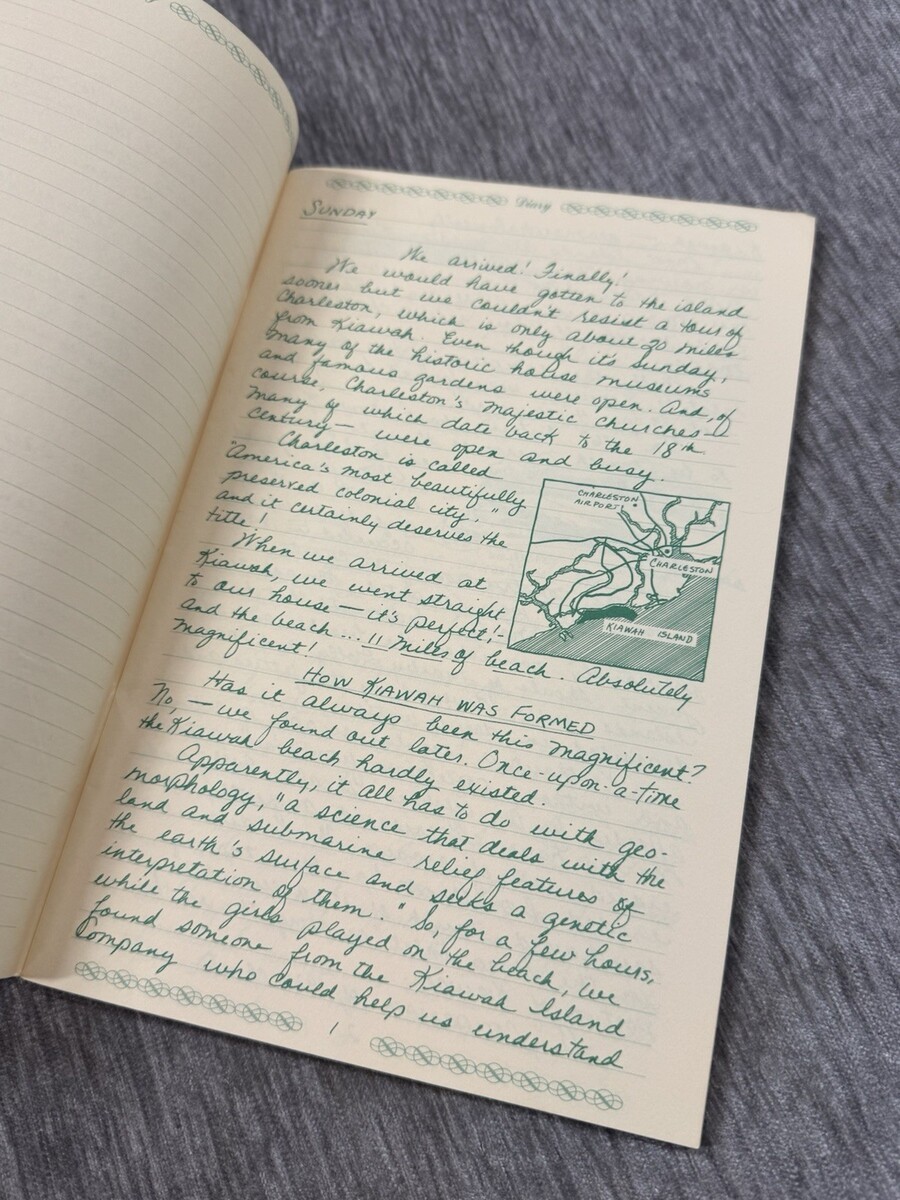 Diary
SUNDAY
We arrived! Finally!
We would have gotten to the island
sooner but we couldn't resist a tour of
Charleston, which is only about 20 miles
from Kiawah. Even though it's Sunday,
many of the historic house museums
and famous gardens were open. And, of
course, Charleston's majestic churches—
many of which date back to the 18th
century— were open and busy.
Charleston is called
"America's most beautifully
preserved colonial city,"
and it certainly deserves the
title!
When we arrived at
Kiawah, we went straight
to our house — it's perfect! -
and the beach... 11 miles of beach. Absolutely
magnificent!
CHARLESTON
AIRPORT
CHARLESTON
KIAWAH ISLAND
HOW KIAWAH WAS FORMED
Has it always been this magnificent?
No, — we found out later. Once-upon-a-time
the Kiawah beach hardly existed.
Apparently, it all has to do with geo-
morphology, "a science that deals with the
land and submarine relief features of
the earth's surface and seeks a genetic
interpretation of them." So, for a few hours,
while the girls played on the beach, we
found someone from the Kiawah Island
Company who could help us understand
1